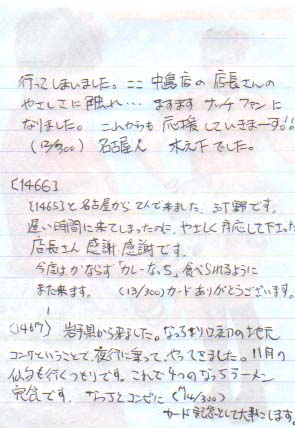 行ってしまいました。ここ 中島店の 店長さんの
やさしさに触れ… ますます ナッチファンに
なりました。これからも 応援していきまーす!!
(13/300) 名古屋人 木下でした。
[1466]
[1465]と名古屋から とんで来ました。河野です。
遅い時間に来てしまったのに、やさしく対応して下さった
店長さん 感謝、感謝です。
今度はかならず「カレーなっち」食べられるように
また来ます。 (13/300)カードありがとうございます。
[1467] 岩手県から来ました。なっち初の地元
コンサということで、夜行に乗って、やってきました。11月の
仙台も行くつもりです。これで4つのなっちラーメン
完食です。なっちとコンビに (14/300)
カード記念として大事にします。